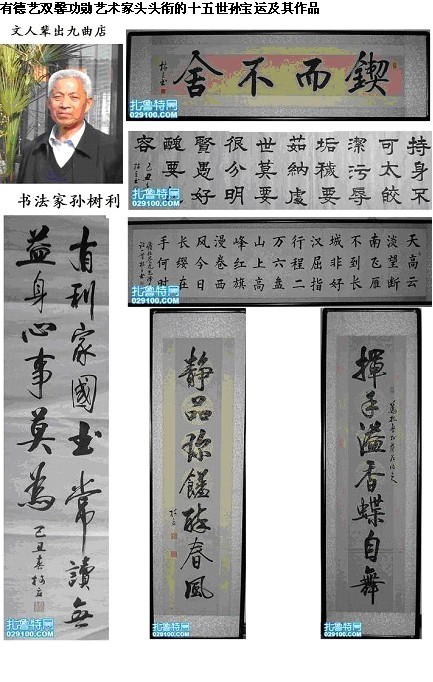 有德艺双馨功勋艺术家头头衔的十五世孙宝运及其作品
文人辈出九曲店
书法家孙树利
鍥而不舍
扎鲁特网
029100.com
持身不
可太皎
潔污辱
垢穢要
茹納處
世莫要
很分明
賢愚好
醜要
容
己丑
扎鲁特网
029100.com
天高云
淡望断
南飞雁
不到长
城非好
汉屈指
行程二
万六盘
山上高
峰红旗
漫卷西
风今日
长缨在
手何时
扎鲁特网
029100.com
有利家國書常讀無
益身心事莫為
己丑春
扎鲁特网
029100.com
揮手溢香蝶自舞
扎鲁特网
029100.com
静品琼饈醉春風
扎鲁特网
029100.com